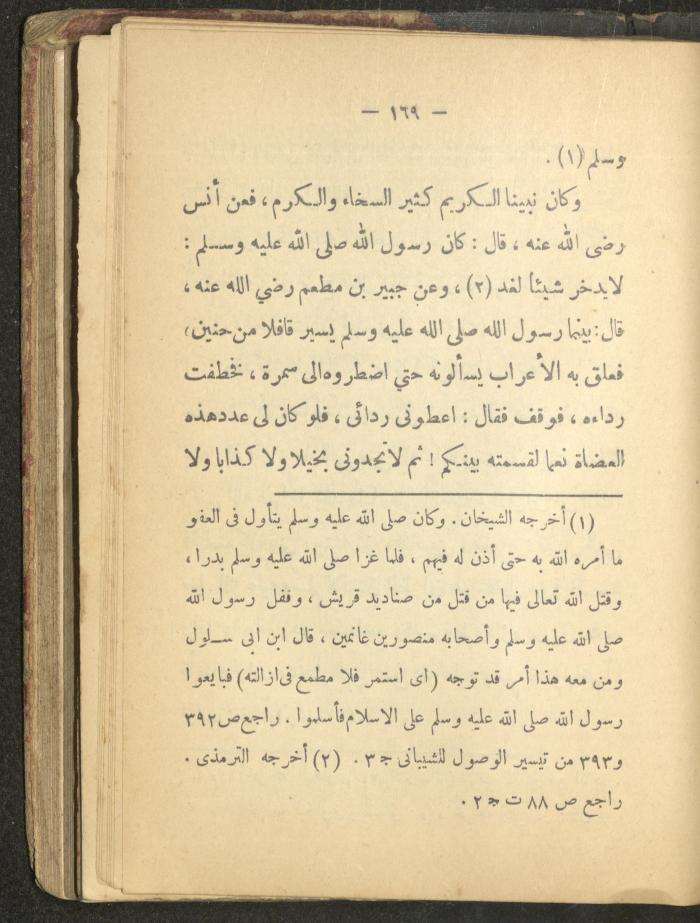 — ١٦٩ —
وسلم (١) .
وكان نبينا الكريم كثير السخاء والكرم ، فعن أنس
رضى الله عنه ، قال : كان رسول الله صلى الله عليه وسلم :
لايدخر شيئا لغد (٢) ، وعن جبير بن مطعم رضي الله عنه ،
قال : بينما رسول الله صلى الله عليه وسلم يسير قافلا من حنين ،
فعلق به الأعراب يسألونه حتي اضطروه الى سمرة ، فخطفت
رداءه ، فوقف فقال : اعطونى ردائى ، فلو كان لى عدد هذه
العضاة نعما لقسمته بينكم ! ثم لاتجدونى بخيلا ولا كذابا ولا
(١) أخرجه الشيخان . وكان صلى الله عليه وسلم يتأول فى العفو
ما أمره الله به حتى أذن له فيهم ، فلما غزا صلى الله عليه وسلم بدرا ،
وقتل الله تعالى فيها من قتل من صناديد قريش ، وقفل رسول الله
صلى الله عليه وسلم وأصحابه منصورين غانمين ، قال ابن ابى سلول
ومن معه هذا أمر قد توجه (اى استمر فلا مطمع فى ازالته) فبايعوا
رسول الله صلى الله عليه وسلم على الاسلام فأسلموا . راجع ص ٣٩٢
و٣٩٣ من تيسير الوصول للشيبانى ج ٣ . (٢) أخرجه الترمذى .
راجع ص ٨٨ ت ج ٢ .